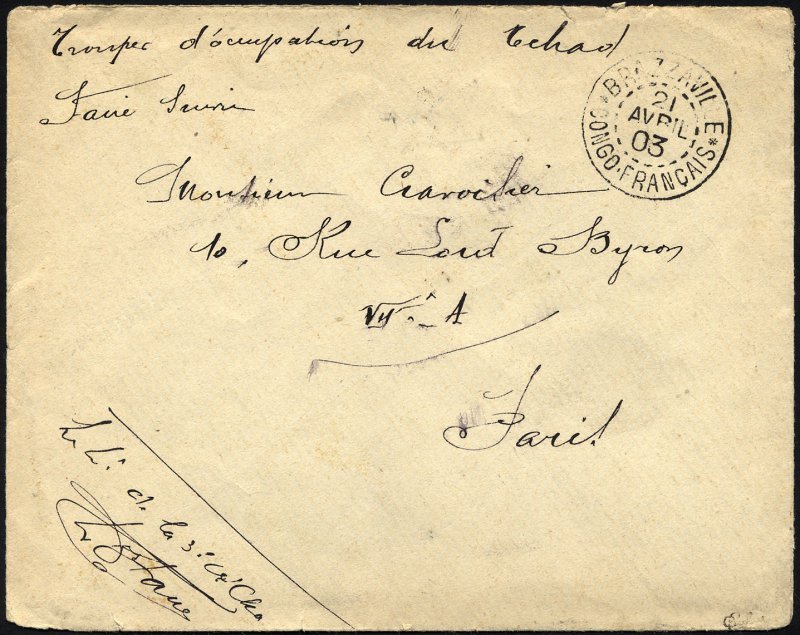 Troupes d'occupation du Tchad
Faire Suivre
BRAZZAVILLE
21
AVRIL
03
*CONGO-FRANÇAIS*
Monsieur
10, Rue Lord Byron
VIIIe A
Paris
Le Lt de la 3e Cie